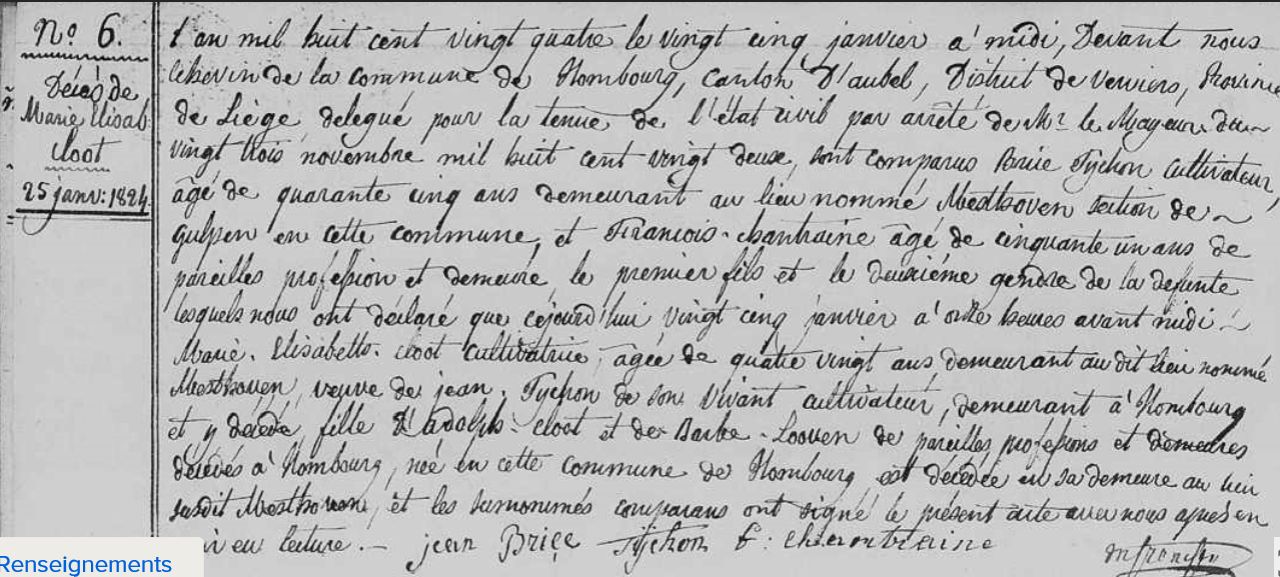 N.o 6.
Décès de
Marie Elisab
Cloot
25 janv: 1824.
L'an mil huit cent vingt quatre le vingt cinq janvier a' midi, Devant nous
Echevin de la commune de Hombourg, Canton D'aubel, District de Verviers, Province
de Liége delegué pour la tenue de l'état civil par arrêté de Mr. le Mayeur du
vingt trois novembre mil huit cent vingt deux, sont comparus Brice Tychon cultivateur,
âgé de quarante cinq ans demeurant au lieu nommé Mesthoven section de ~
Gulpen en cette commune, et François-chantraine âgé de cinquante un ans de
pareilles profession et demeure, le premier fils et le deuxiéme gendre de la defunte
lesquels nous ont déclaré que cejourd'hui vingt cinq janvier a' onze heures avant midi
Marie. Elisabeth. Cloot cultivatrice, âgée de quatre vingt ans demeurant au dit lieu nommé
Mesthoven, veuve de jean. Tychon de son vivant cultivateur, demeurant a' Hombourg
et y décédé, fille D'adolph. Cloot et de Barbe. Looven de pareilles professions et demeures
décédés a' Hombourg, née en cette commune de Hombourg est décédée en sa demeure au lieu
susdit Mesthoven, et les surnommés comparans ont signé le présent acte avec nous après en
avoir eu lecture. — jean Brice Tychon f: chantraine
Renseignements